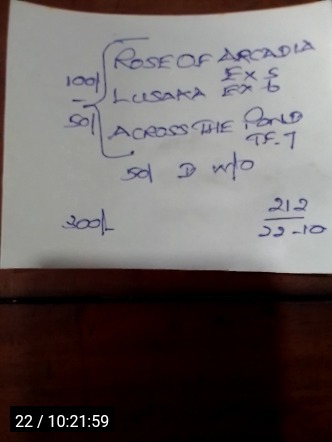 ROSE OF ARCADIA
100/ EX 5
LUSAKA EX 6
50/
ACROSS THE POND
TF-7
50/ D W/O
300/- 212
22-10
22 / 10:21:59